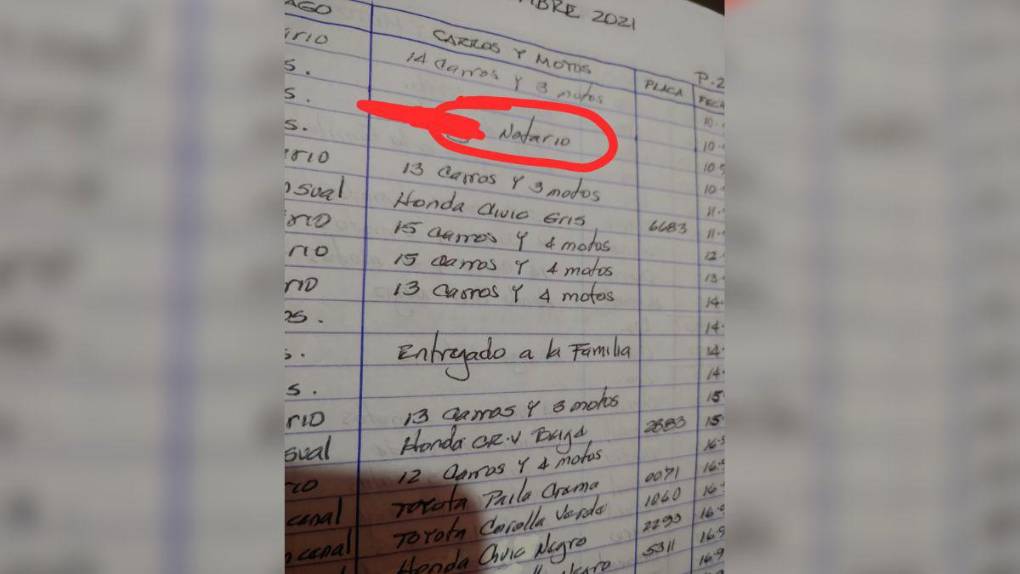 MBRE 2021
AGO CARROS Y MOTOS PLACA P-2
rio 14 Carros Y 3 motos FECH
s. 10
s. Notario 10
s. 10-9
rio 13 Carros Y 3 motos 10-
nsual Honda Civic Gris 6683 11-
rio 15 Carros Y 4 motos 11-
rio 15 Carros Y 4 motos 12-
rio 13 Carros Y 4 motos 13-
os. 14-
s. Entregado a la Familia 14-
s. 14-
rio 13 Carros Y 3 motos 15
sual Honda CR-V 2883 15
io 12 Carros Y 4 motos 16-
canal Toyota Crema 0071 16-9
canal Toyota Corolla Verde 1060 16-
Honda Civic Negro 2293 16-9
Negro 5311 16-9